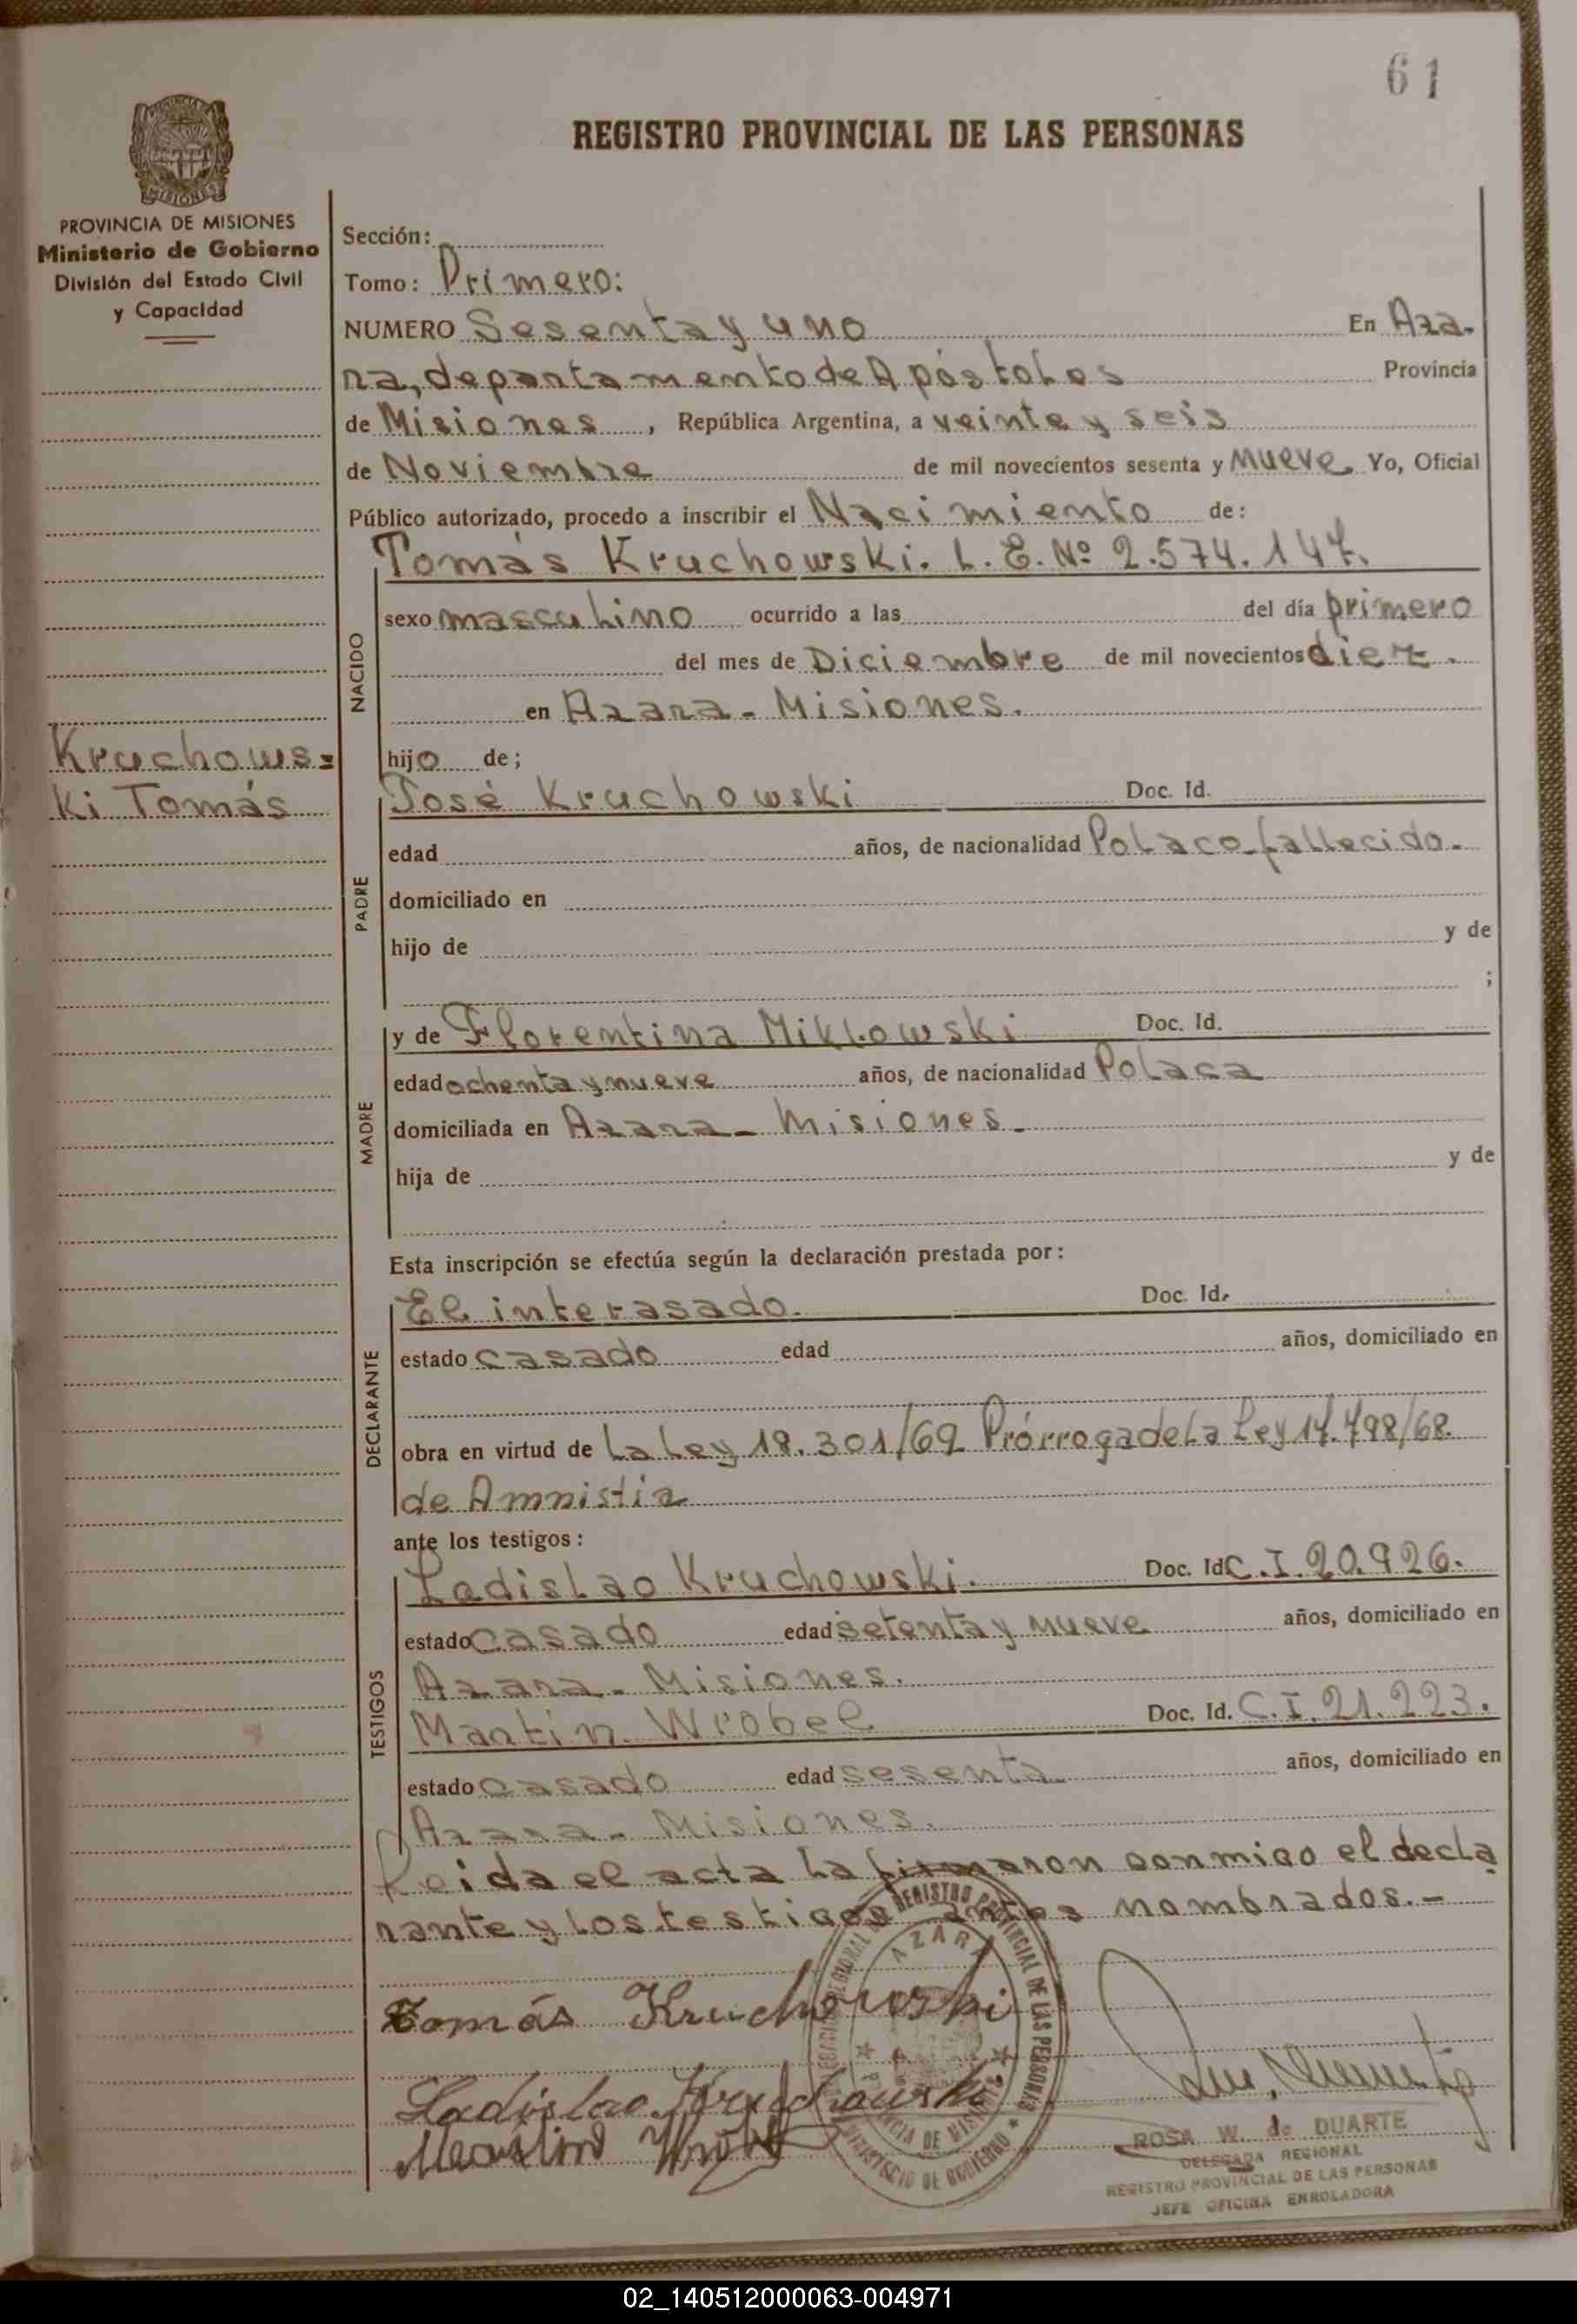 61
REGISTRO PROVINCIAL DE LAS PERSONAS
PROVINCIA DE MISIONES
MISIONES
PROVINCIA DE MISIONES
Ministerio de Gobierno
División del Estado Civil
y Capacidad
Sección:
Tomo: Primero:
NUMERO Sesenta y uno En Aza-
ra, departamento de Apóstoles Provincia
de Misiones, República Argentina, a veinte y seis
de Noviembre de mil novecientos sesenta y nueve Yo, Oficial
Público autorizado, procedo a inscribir el Nacimiento de:
Tomás Kruchowski. L. E. Nº 2.574.147.
NACIDO
sexo masculino ocurrido a las del día primero
del mes de Diciembre de mil novecientos diez.
en Azara - Misiones.
Kruchows=
ki Tomás
hijo de;
José Kruchowski Doc. Id.
PADRE
edad años, de nacionalidad Polaco fallecido.
domiciliado en
hijo de y de
;
MADRE
y de Florentina Miklowski Doc. Id.
edad ochenta y nueve años, de nacionalidad Polaca
domiciliada en Azara - Misiones.
hija de y de
Esta inscripción se efectúa según la declaración prestada por:
DECLARANTE
El interasado. Doc. Id.
estado casado edad años, domiciliado en
obra en virtud de la Ley 18.301/69 Prórroga de la Ley 17.798/68.
de Amnistia
ante los testigos:
TESTIGOS
Ladislao Kruchowski. Doc. Id C.I. 20.926.
estado casado edad setenta y nueve años, domiciliado en
Azara - Misiones.
Martín Wrobel Doc. Id. C.I. 21.223.
estado casado edad sesenta años, domiciliado en
Azara - Misiones.
Leida el acta la firmaron conmigo el decla
rante y los testigos antes nombrados.-
Tomás Kruchowski
Ladislao Kruchowski
REGISTRO PROVINCIAL DE LAS PERSONAS
AZARA
PROVINCIA DE MISIONES
MINISTERIO DE GOBIERNO
ROSA W. de DUARTE
DELEGADA REGIONAL
REGISTRO PROVINCIAL DE LAS PERSONAS
JEFE OFICINA ENROLADORA
02_140512000063-004971